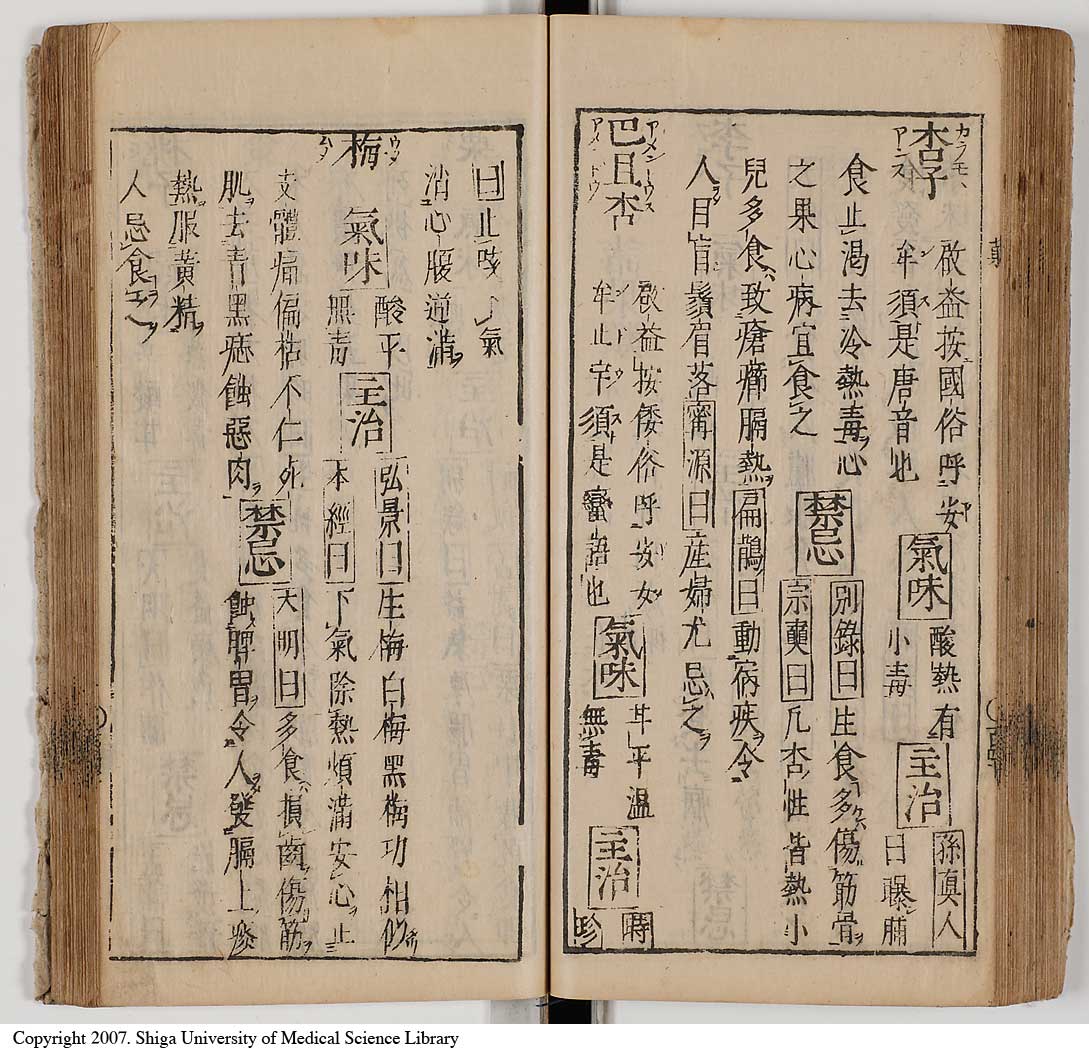 杏子 カラモヽ アンス
啟益按國俗呼安
牟須是唐音也
氣味
酸熱有
小毒
主治
孫真人
曰曝脯
食止渴去冷熱毒心
之果心病宜食之
禁忌
別錄曰生食多傷筋骨
宗奭曰凡杏性皆熱小
兒多食致瘡癰膈熱扁鵲曰動病疾令
人目盲鬚眉落甯源曰產婦尤忌之
巴旦杏 アメントウス アメンドウ
啟益按倭俗呼安女
牟止宇須是蠻語也
氣味
甘平溫
無毒
主治
時
珍
曰止咳下氣
消心腹逆滿
梅 ウメ ムメ
氣味
酸平
無毒
主治
弘景曰生梅白梅黑梅功相似
本經曰下氣除熱煩滿安心止
支體痛偏枯不仁死
肌去青黑痣蝕惡肉
禁忌
大明曰多食損齒傷筋
蝕脾胃令人發膈上痰
熱服黃精
人忌食之
Copyright 2007. Shiga University of Medical Science Library